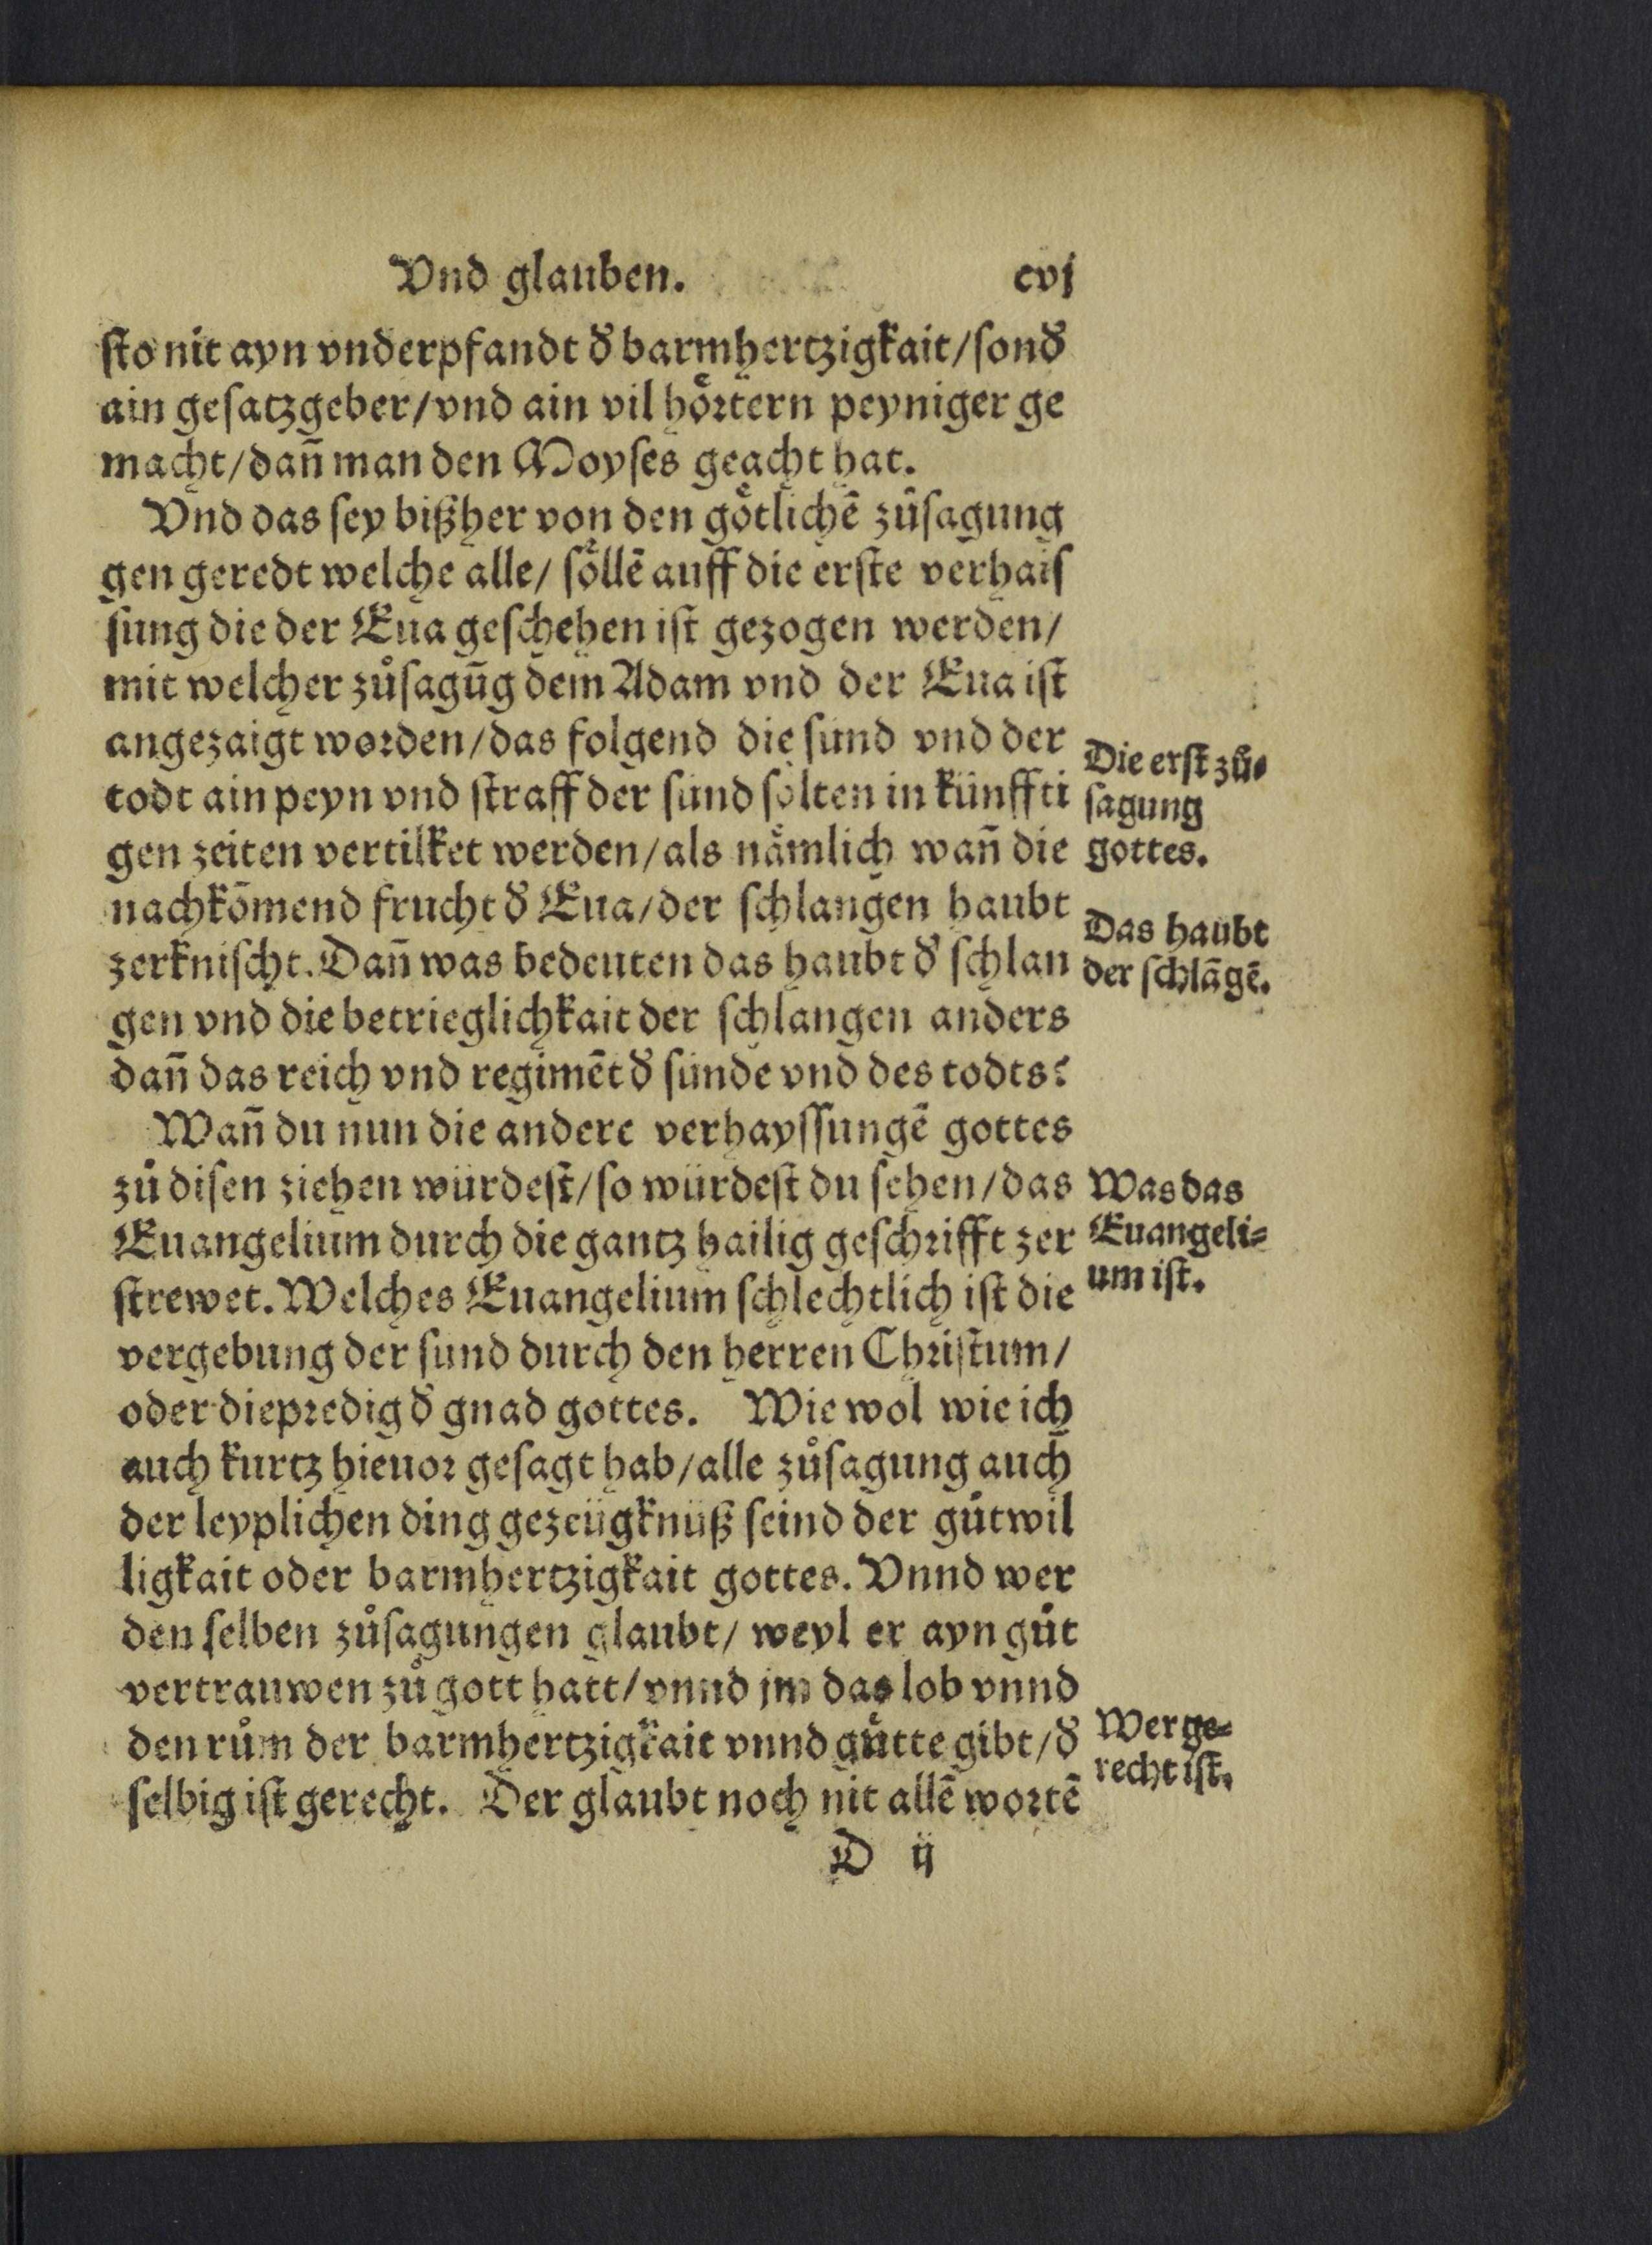 Vnd glauben. cvj
ſto nit ayn vnderpfandt đ barmhertzigkait/ſonđ
ain geſatzgeber/vnd ain vil hoͤꝛtern peyniger ge
macht/dañ man den Moyſes geacht hat.
Vnd das ſey bißher von den goͤtlichē zuͦſagung
gen geredt welche alle/ ſoͤllē auff die erſte verhaiſ
ſung die der Eua geſchehen iſt gezogen werden/
mit welcher zuͦſagūg dem Adam vnd der Eua iſt
angezaigt woꝛden/das folgend die ſünd vnd der
todt ain peyn vnd ſtraff der ſünd ſolten in künffti
gen zeiten vertilket werden/als naͤmlich wañ die
nachkōmend frucht đ Eua/der ſchlangen haubt
zerkniſcht. Dañ was bedeuten das haubt đ ſchlan
gen vnd die betrieglichkait der ſchlangen anders
dañ das reich vnd regimēt đ ſünde vnd des todts?
Wañ du nun die andere verhayſſungē gottes
zuͦ diſen ziehen würdeſt/ſo würdeſt du ſehen/das
Euangelium durch die gantz hailig geſchꝛifft zer
ſtrewet. Welches Euangelium ſchlechtlich iſt die
vergebung der ſund durch den herren Chꝛiſtum/
oder diepꝛedig đ gnad gottes. Wie wol wie ich
auch kurtz hieuoꝛ geſagt hab/alle zuͦſagung auch
der leyplichen ding gezeügknüß ſeind der guͦtwil
ligkait oder barmhertzigkait gottes. Vnnd wer
den ſelben zuͦſagungen glaubt/ weyl er ayn guͦt
vertrauwen zuͦ gott hatt/vnnd jm das lob vnnd
den ruͦm der barmhertzigkait vnnd guͤtte gibt/đ
ſelbig iſt gerecht. Der glaubt noch nit allē woꝛtē
D ij
Die erſt zuͦ⸗
ſagung
gottes.
Das haubt
der ſchlāgē.
Was das
Euangeli⸗
um iſt.
Wer ge⸗
recht iſt.